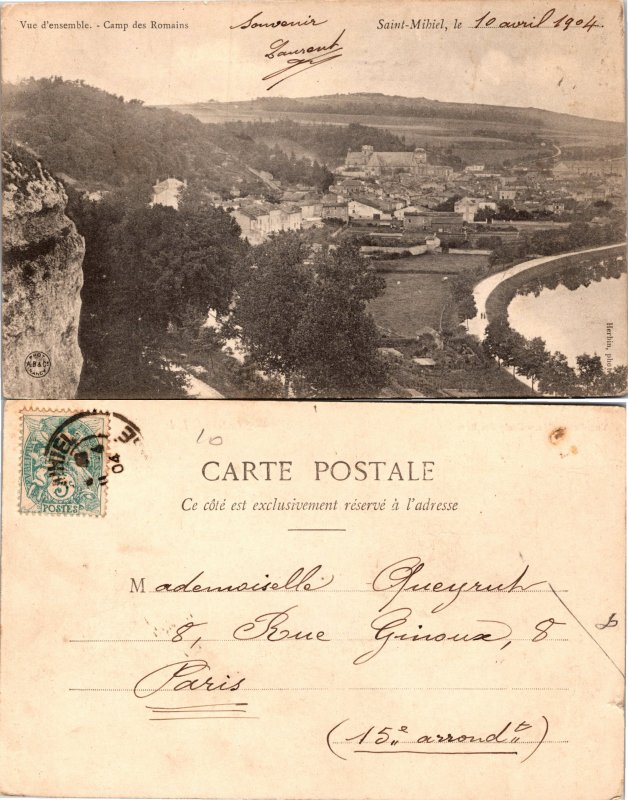 Vue d'ensemble. - Camp des Romains
Souvenir
Laurent
Saint-Mihiel, le 10 avril 1904.
Herbin, phot
10
MIHIEL
04
5
POSTES
CARTE POSTALE
Ce côté est exclusivement réservé à l'adresse
Mademoiselle Queyrut
8, Rue Ginoux, 8
Paris
(15e arrondt)